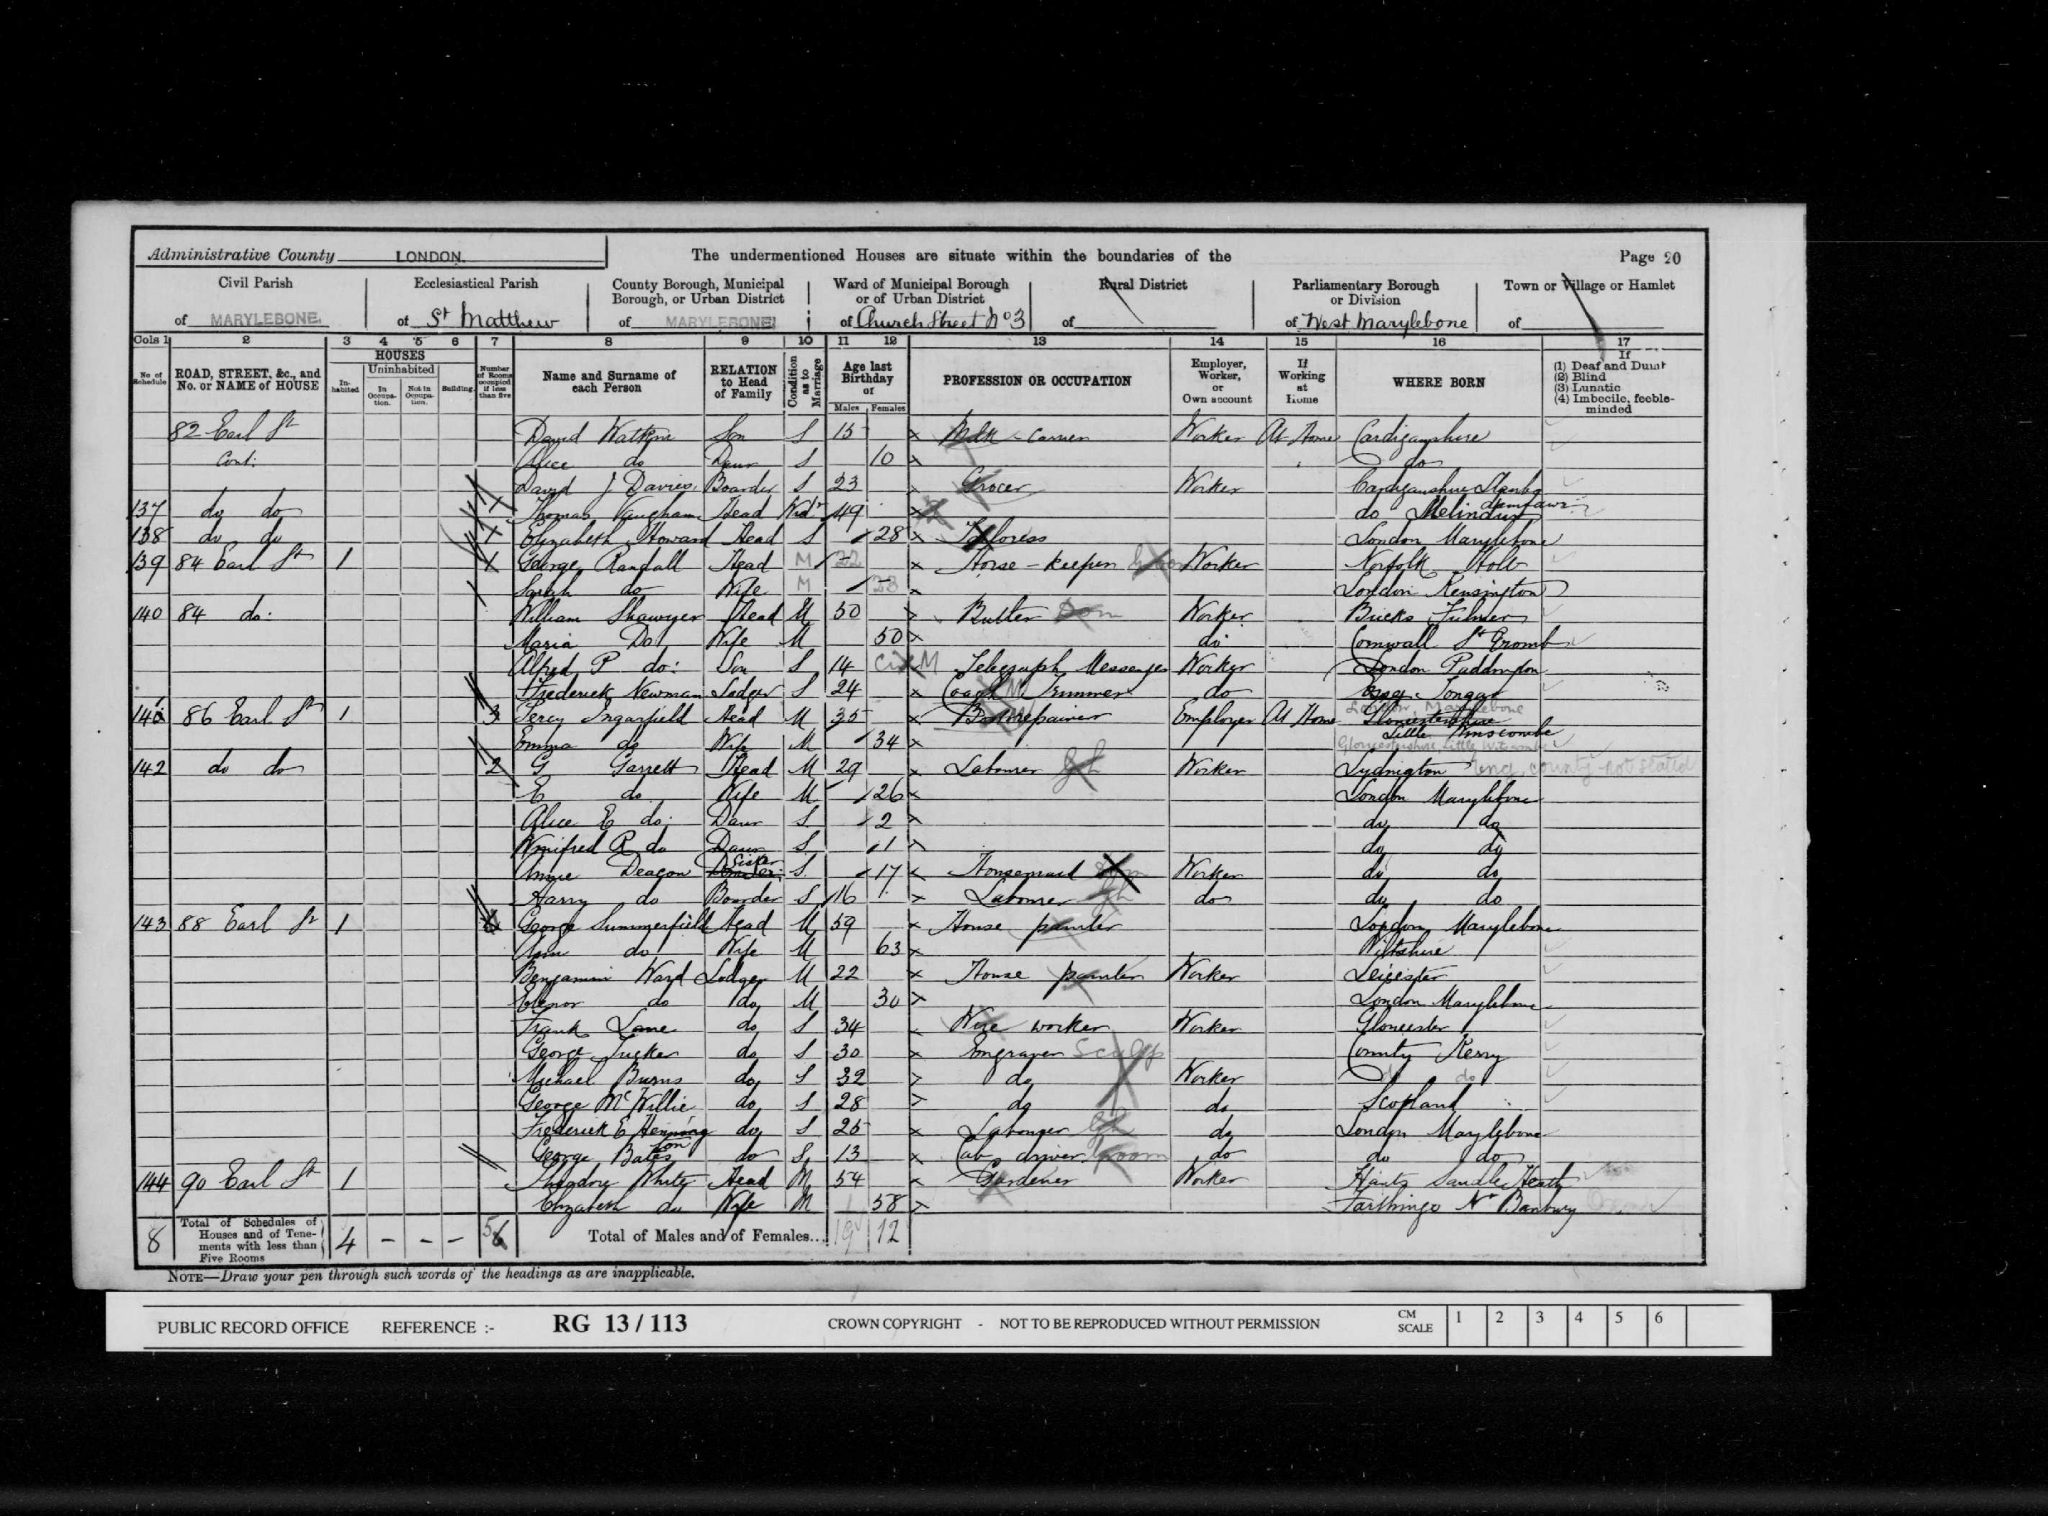 Administrative County LONDON The undermentioned Houses are situate within the boundaries of the Page 20
Civil Parish Ecclesiastical Parish County Borough, Municipal Borough, or Urban District Ward of Municipal Borough or of Urban District Rural District Parliamentary Borough or Division Town or Village or Hamlet
of MARYLEBONE of St Matthew of MARYLEBONE of Church Street No 3 of of West Marylebone of
Cols 1 2 3 4 5 6 7 8 9 10 11 12 13 14 15 16 17
No. of Schedule ROAD, STREET, &c., and No. or NAME of HOUSE HOUSES Inhabited Uninhabited In Occupation. Not in Occupation. Building. Number of Rooms occupied if less than five Name and Surname of each Person RELATION to Head of Family Condition as to Marriage Age last Birthday of Males Females PROFESSION OR OCCUPATION Employer, Worker, or Own account If Working at Home WHERE BORN If (1) Deaf and Dumb (2) Blind (3) Lunatic (4) Imbecile, feeble-minded
82 Earl St David Watkins Son S 15 Milk carrier Worker At Home Cardiganshire
Cont: Alice do Daur S 10 do
David J Davies Boarder S 23 Grocer Worker Cardiganshire
137 do do Thomas Vaughan Head Widr 49 do Melindwr
138 do do Elizabeth Howard Head S 28 London Marylebone
139 84 Earl St 1 1 George Randall Head M 22 Horse-keeper Worker Norfolk Holt
Sarah do Wife M 23 London Kensington
140 84 do: William Shawyer Head M 50 Butler Dom Worker Bucks Fulmer
Maria Do Wife M 50 do Cornwall St
Alfred P do: Son S 14 Civ M Telegraph Messenger Worker London Paddington
Frederick Newman Lodger S 24 Coach Trimmer do Essex Ongar
86 Earl St 1 3 Percy Ingarfield Head M 35 Employer At Home London, Marylebone Gloucestershire
Emma do Wife M 34 Little Gloucestershire Little Witcombe
142 do do 2 G Garrett Head M 29 Labourer Worker Lydington Eng. county not stated
E do Wife M 26 London Marylebone
Alice E do: Daur S 2 do do
Winifred R do Daur S 1 do do
Annie Deacon Sister S 17 Housemaid Worker do do
Harry do Boarder S 16 Labourer do do do
143 88 Earl St 1 George Summerfield Head M 59 House painter London Marylebone
Ann do Wife M 63 Wiltshire
Benjamin Ward Lodger M 22 House painter Worker Leicester
Elenor do do M 30 London Marylebone
Frank Lane do S 34 Wire worker Worker Gloucester
George Tucker do S 30 Engraver Sculp County Kerry
Michael Burns do S 32 do Worker do do
George McWillie do S 28 do do Scotland
Frederick E Henning do S 25 Labourer do London Marylebone
George Bates do S 13 Cab driver groom do do do
144 90 Earl St 1 Theodore White Head M 54 Gardener Worker Hants Heath
Elizabeth do Wife M 58 Farthingo Nr Banbury
8 Total of Schedules of Houses and of Tenements with less than Five Rooms 4 - - - Total of Males and of Females... 19 12
NOTE—Draw your pen through such words of the headings as are inapplicable.
PUBLIC RECORD OFFICE REFERENCE :- RG 13 / 113 CROWN COPYRIGHT - NOT TO BE REPRODUCED WITHOUT PERMISSION CM SCALE 1 2 3 4 5 6